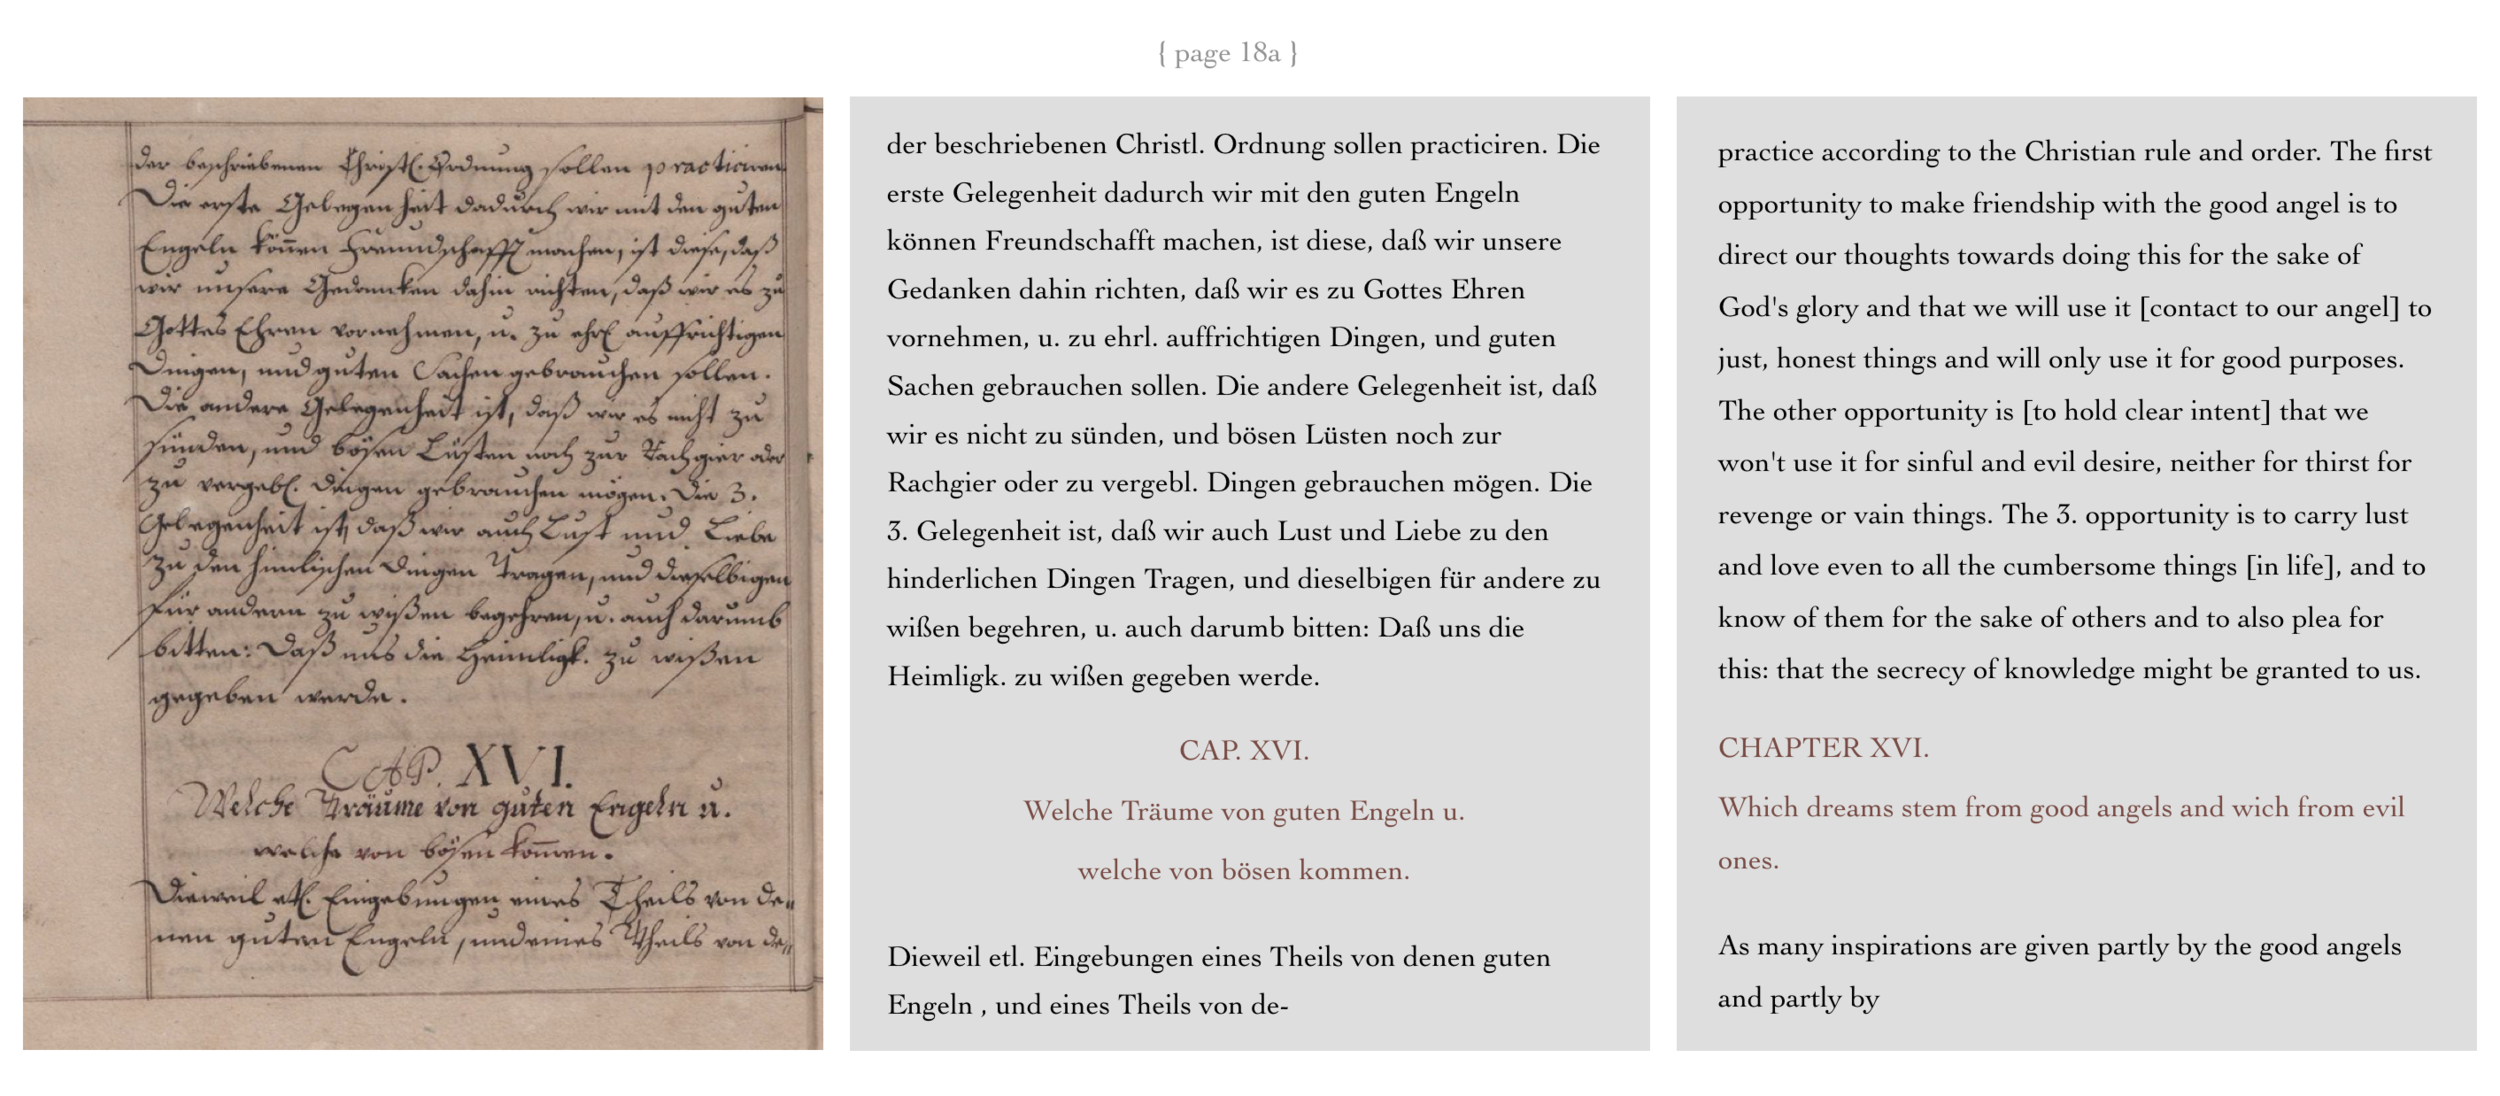 { page 18a }
der beschriebenen Christl. Ordnung sollen practiciren
Die erste Gelegenheit dadurch wir mit den guten
Engeln können Freundschafft machen, ist diese, daß
wir unsere Gedancken dahin richten, daß wir es zu
Gottes Ehren vornehmen, u. zu ehrl. auffrichtigen
Dingen, und guten Sachen gebrauchen sollen.
Die andere Gelegenheit ist, daß wir es nicht zu
sünden, und bösen Lüsten noch zur Rachgier oder
zu vergebl. Dingen gebrauchen mögen. Die 3.
Gelegenheit ist, daß wir auch Lust und Liebe
zu den himlischen Dingen Tragen, und dieselbigen
für andern zu wißen begehren, u. auch darumb
bitten: Daß uns die Heimligk. zu wißen
gegeben werde.
CAP. XVI.
Welche Träume von guten Engeln u.
welche von bösen kom̄en.
Dieweil etl. Eingebungen eines Theils von de„
nen guten Engeln, und eines Theils von de„
der beschriebenen Christl. Ordnung sollen practiciren. Die
erste Gelegenheit dadurch wir mit den guten Engeln
können Freundschafft machen, ist diese, daß wir unsere
Gedanken dahin richten, daß wir es zu Gottes Ehren
vornehmen, u. zu ehrl. auffrichtigen Dingen, und guten
Sachen gebrauchen sollen. Die andere Gelegenheit ist, daß
wir es nicht zu sünden, und bösen Lüsten noch zur
Rachgier oder zu vergebl. Dingen gebrauchen mögen. Die
3. Gelegenheit ist, daß wir auch Lust und Liebe zu den
hinderlichen Dingen Tragen, und dieselbigen für andere zu
wißen begehren, u. auch darumb bitten: Daß uns die
Heimligk. zu wißen gegeben werde.
CAP. XVI.
Welche Träume von guten Engeln u.
welche von bösen kommen.
Dieweil etl. Eingebungen eines Theils von denen guten
Engeln , und eines Theils von de-
practice according to the Christian rule and order. The first
opportunity to make friendship with the good angel is to
direct our thoughts towards doing this for the sake of
God's glory and that we will use it [contact to our angel] to
just, honest things and will only use it for good purposes.
The other opportunity is [to hold clear intent] that we
won't use it for sinful and evil desire, neither for thirst for
revenge or vain things. The 3. opportunity is to carry lust
and love even to all the cumbersome things [in life], and to
know of them for the sake of others and to also plea for
this: that the secrecy of knowledge might be granted to us.
CHAPTER XVI.
Which dreams stem from good angels and wich from evil
ones.
As many inspirations are given partly by the good angels
and partly by